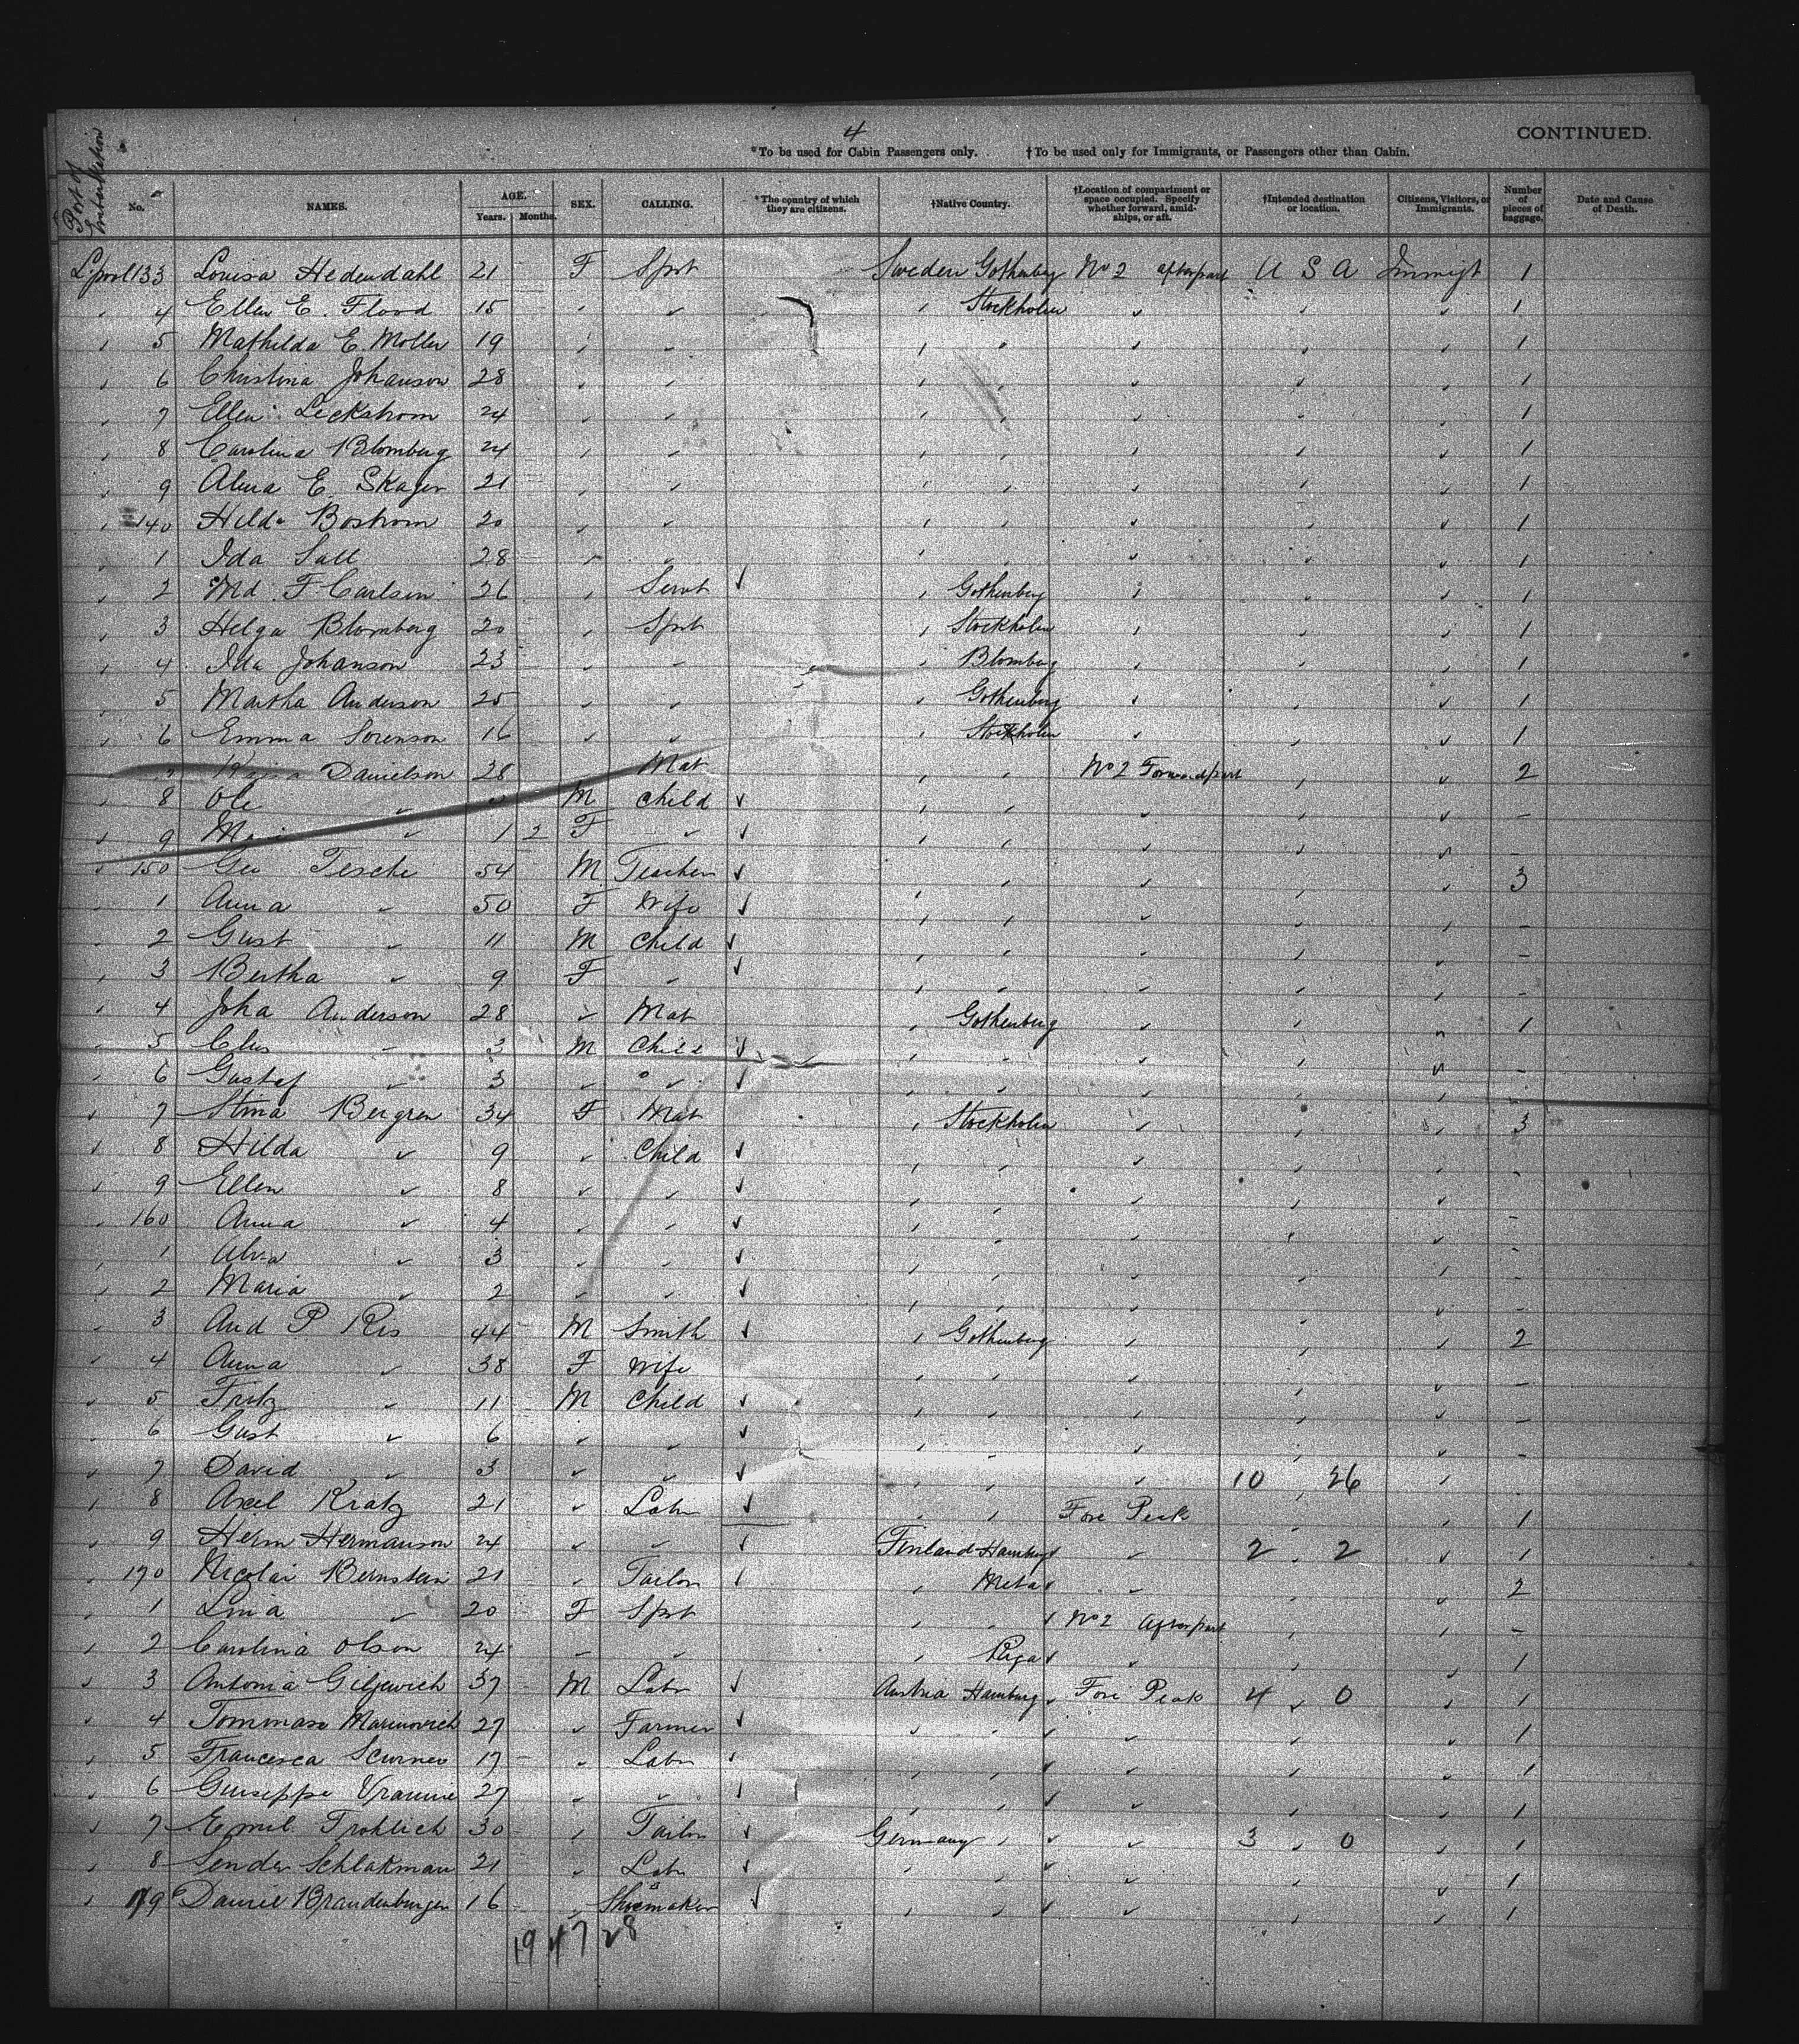 4
CONTINUED.
*To be used for Cabin Passengers only. †To be used only for Immigrants, or Passengers other than Cabin.
Port of Embarkation No. NAMES. AGE. Years. Months. SEX. CALLING. *The country of which they are citizens. †Native Country. †Location of compartment or space occupied. Specify whether forward, amidships, or aft. †Intended destination or location. Citizens, Visitors, or Immigrants. Number of pieces of baggage. Date and Cause of Death.
L'pool 133 Louisa Hedendahl 21 F Spst Sweden Gothenberg No 2 afterpart U S A Immigt 1
4 Ellen E. Flood 15 " " " Stockholm " " " 1
5 Mathilda E. Moller 19 " " " " " " " 1
6 Christina Johanson 28 " " " " " " " 1
7 Ellen Leckstrom 24 " " " " " " " 1
8 Carolina Blomberg 24 " " " " " " " 1
9 Alma E. Skager 21 " " " " " " " 1
140 Hilda Bostrom 20 " " " " " " " 1
1 Ida Sall 28 " " " " " " " 1
2 Md. F. Carlson 26 " Servt ✓ " Gothenberg " " " 1
3 Helga Blomberg 20 " Spst " Stockholm " " " 1
4 Ida Johanson 23 " " " Blomberg " " " 1
5 Martha Anderson 25 " " " Gothenberg " " " 1
6 Emma Sorenson 16 " " " Stockholm " " " 1
7 Kajsa Danielson 28 Mat " " No 2 Forwardpart " " 2
8 Ole " M Child ✓ " " " " " -
9 " 1 2 F " ✓ " " " " " -
150 Geo Tesche 54 M Teacher ✓ " " " " " 3
1 Anna " 50 F Wife ✓ " " " " " -
2 Gust " 11 M Child ✓ " " " " " -
3 Bertha " 9 F " ✓ " " " " " -
4 Joha Anderson 28 " Mat " Gothenberg " " " 1
5 " 3 M Child ✓ " " " " " -
6 Gustaf " 3 " " ✓ " " " " " -
7 Stina Bergren 34 F Mat " Stockholm " " " 3
8 Hilda " 9 " Child ✓ " " " " " -
9 Ellen " 8 " " ✓ " " " " "
160 Anna " 4 " " ✓ " " " " " -
1 " 3 " " ✓ " " " " " -
2 Maria " 2 " " ✓ " " " " " -
3 And P Ris 44 M Smith ✓ " Gothenberg " " " 2
4 Anna " 38 F Wife " " " " " -
5 Fritz " 11 M Child ✓ " " " " " -
6 Gust " 6 " " " " " " " -
7 David " 3 " " ✓ " " " 10 " 26 "
8 Axel Kratz 21 " Labr ✓ " " Fore Peak " " 1
9 Herm Hermanson 24 " " ✓ Finland Hamburg " 2 " 2 " 1
170 Nicolai Bernstein 21 " Tailor ✓ " " " " 2
1 Lina " 20 F Spst " " No 2 Afterpart " " -
2 Carolina Olson 24 " " " Riga " " " 1
3 Antonia Giljewich 37 M Labr ✓ Austria Hamburg Fore Peak 4 " 0 " 1
4 Tommaso Marinovich 27 " Farmer ✓ " " " " " 1
5 Francesca Scurneo 17 " Labr ✓ " " " " " 1
6 Giuseppe 27 " " ✓ " " " " " 1
7 Emil Frohlich 30 " Tailor ✓ Germany " " 3 " 0 " 1
8 Sender Schlakman 21 " Labr ✓ " " " " 1
179 Daniel Brandenburger 16 " Shoemaker ✓ " " " " " 1
19 47 28